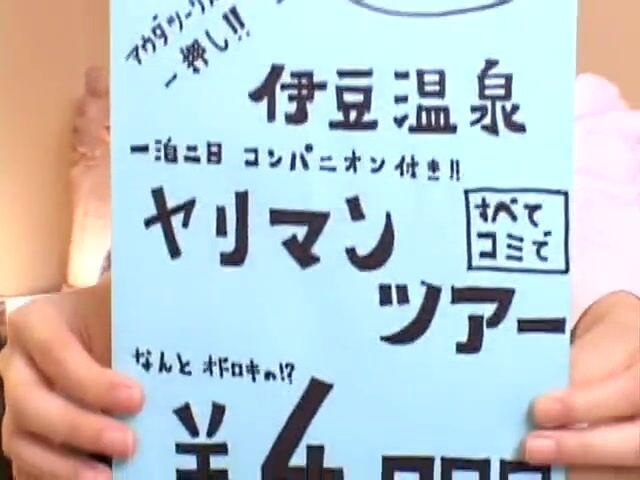 一押し!!
伊豆温泉
一泊二日 コンパニオン付き!!
ヤリマン
すべて
コミで
ツアー
なんと オドロキの!?
¥4